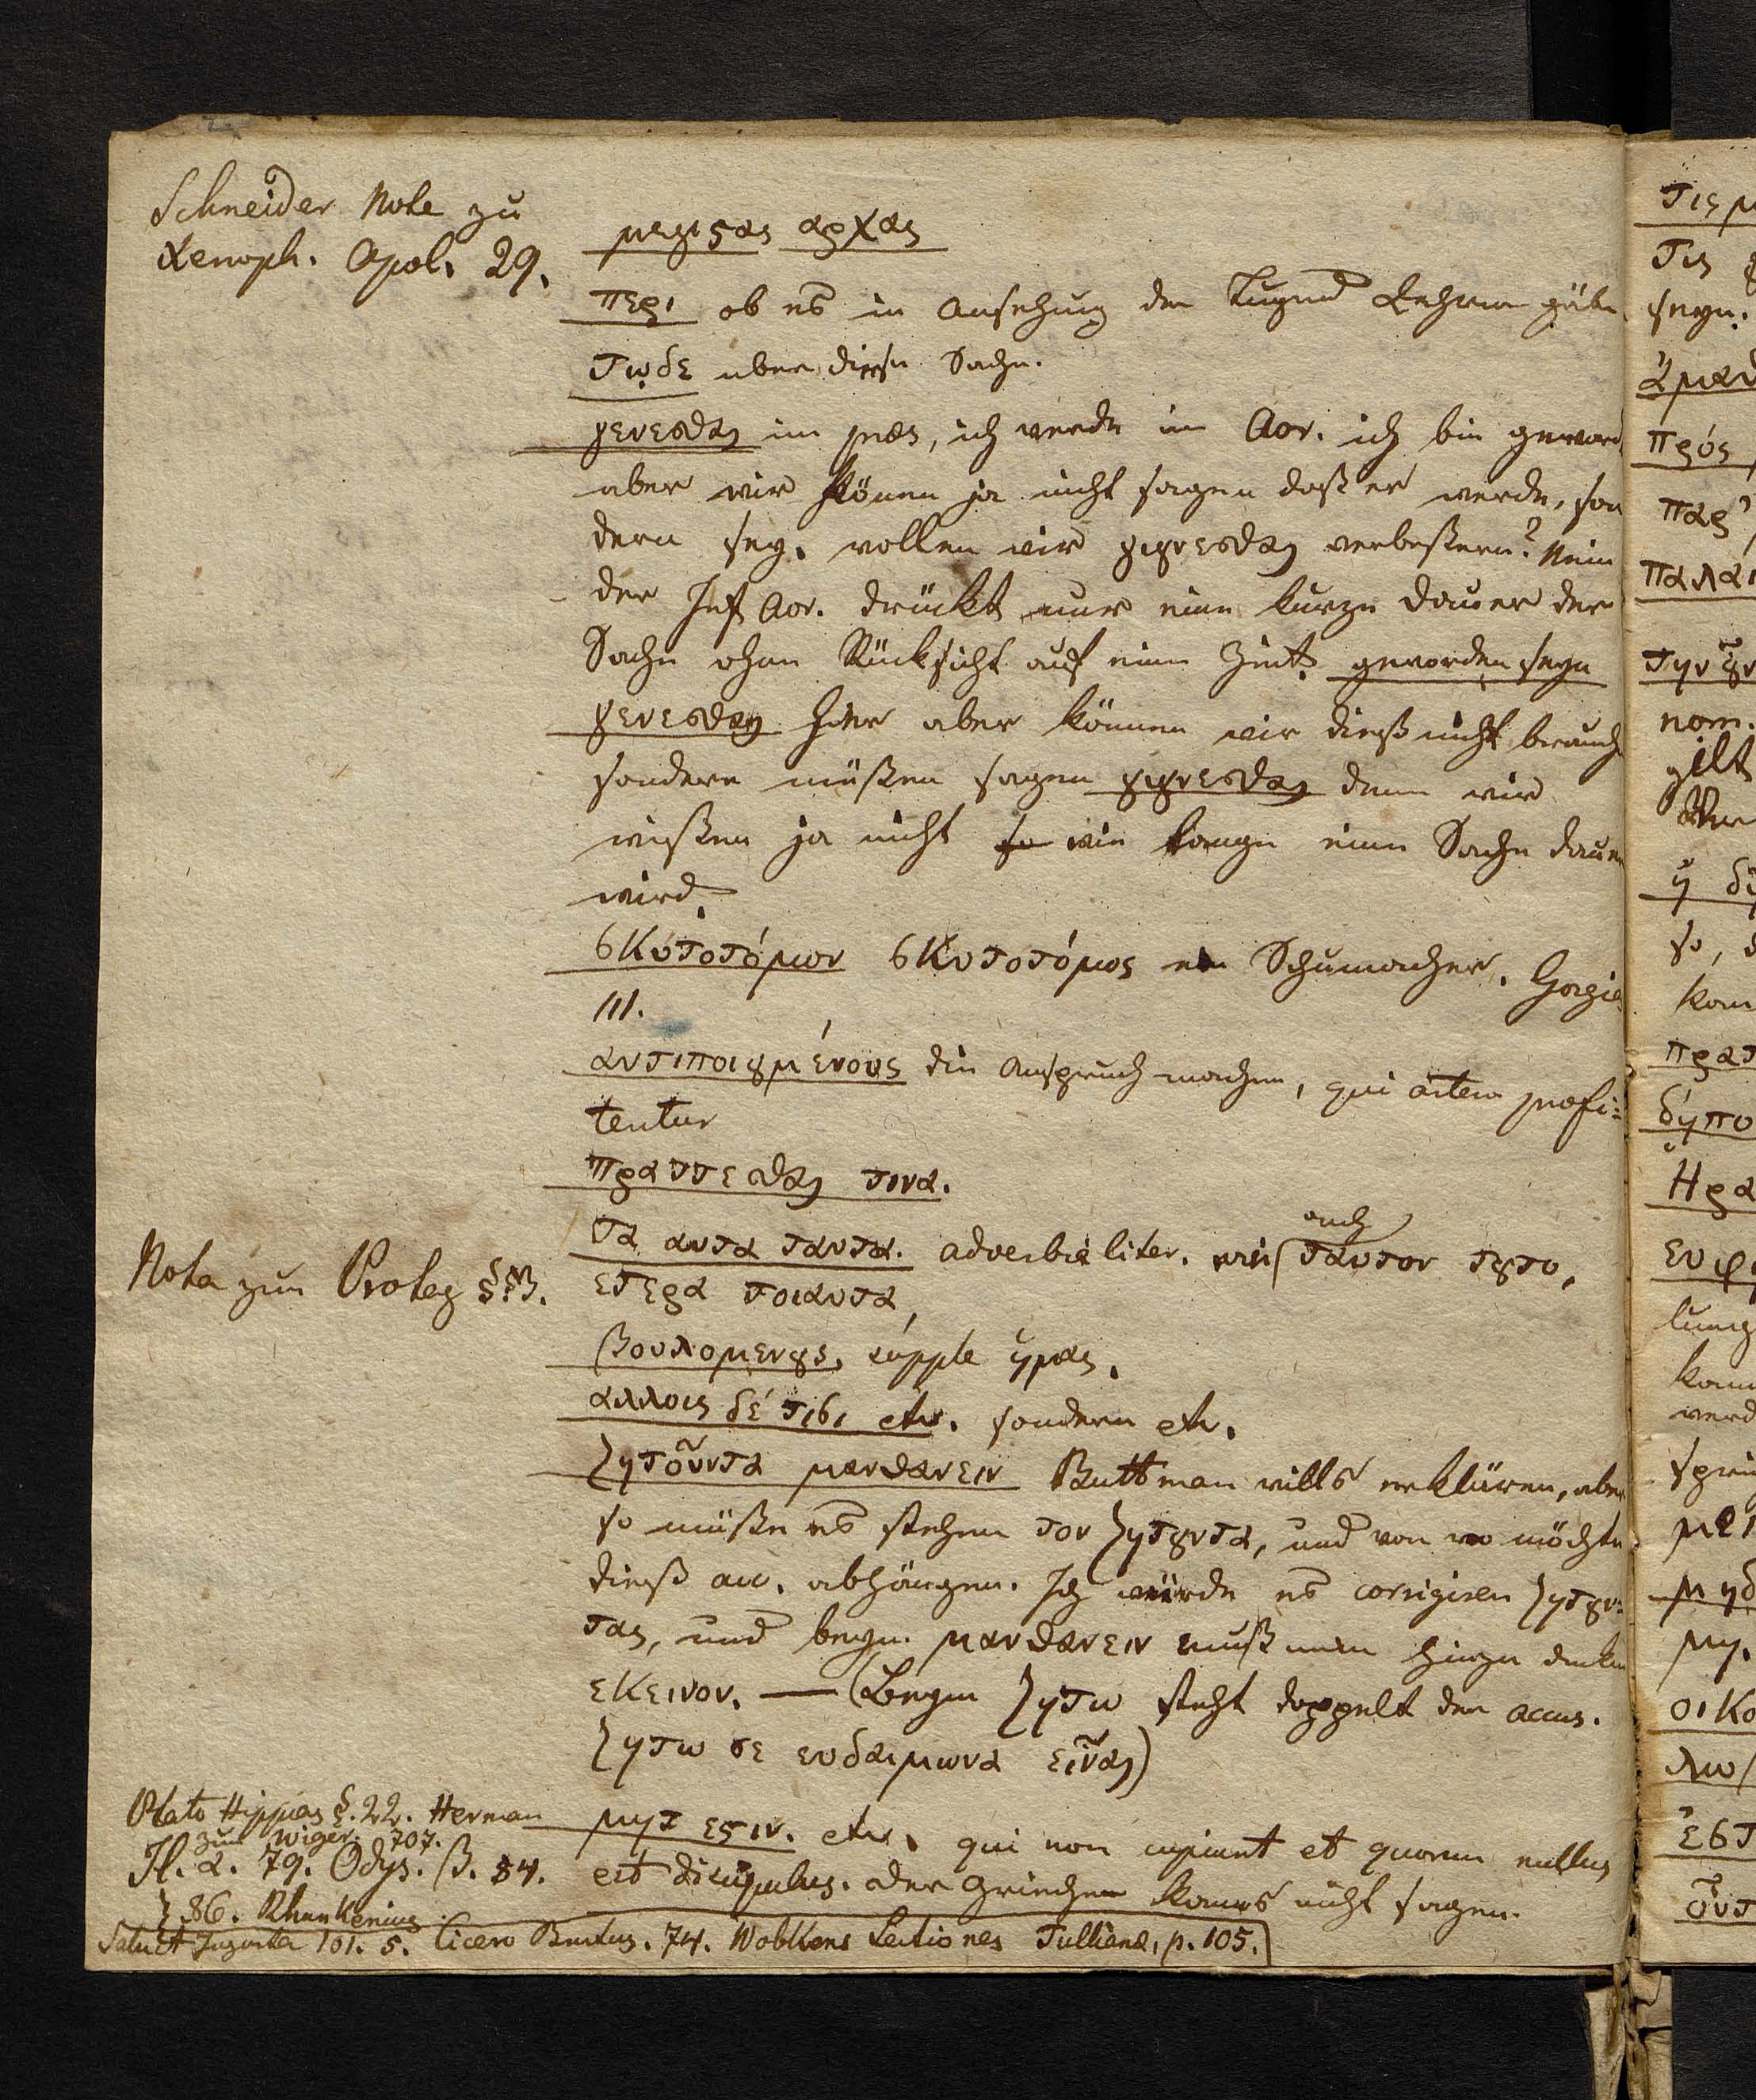 Schneider Note zu
Xenoph. Apol. 29.
μεγιϛας αρχας
περι ob es in Ansehung der Tugend Lehrer gäbe
τῳδε über diese Sache.
γενεσθαι im praes, ich werde im Aor. ich bin geword
aber wir können ja nicht sagen daß er werde, son
dern sey. wollen wir γιγνεσθαι verbeßern? Nein
der Inf Aor. drückt nur eine kurze Dauer der
Sache ohne Rücksicht auf eine Zeit. geworden seyn
γενεσθαι hier aber können wir dieß nicht brauch
sondern müßen sagen γιγνεσθαι denn wir
wißen ja nicht so wie lange eine Sache dauern
wird.
σκυτοτόμον σκυτοτόμος ein Schumacher. Gorgias
111.
αντιποιȣμένους die Anspruch machen, qui artem profi=
tentur
πραττεσθαι τινα.
τα αυτα ταυτα. adverbialiter. wie auch ταυτον τȣτο,
ετερα τοιαυτα,
Nota zum Proleg §.
βουλομενȣς, supple ἡμας.
αλλοις δέ τισι etc. sondern etc.
ζητοῦντα μανθανειν Buttman wills erklären, aber
so müße es stehen τον ζητȣντα, und von wo möchte
dieß acc. abhängen. Ich würde es corrigiren ζητȣν=
τας, und beym μανθανειν muß man hinzu denken
εκεινον. — (Beym ζητω steht doppelt der accus.
ζητω σε ευδαιμωνα εἶναι)
Plato Hippias §. 22. Herman
zum Wiger. 707.
Il. α. 79. Odys. β. 54.
ζ 86. Rhunkenius
μητ εϛιν. etc. qui non cupiunt et quorum nullus
est dicipulus. der Grieche kanns nicht sagen.
Salust Jugurta 101. 5. Cicero Brutus. 74. Wobkens Lectiones Tullianae, p. 105.